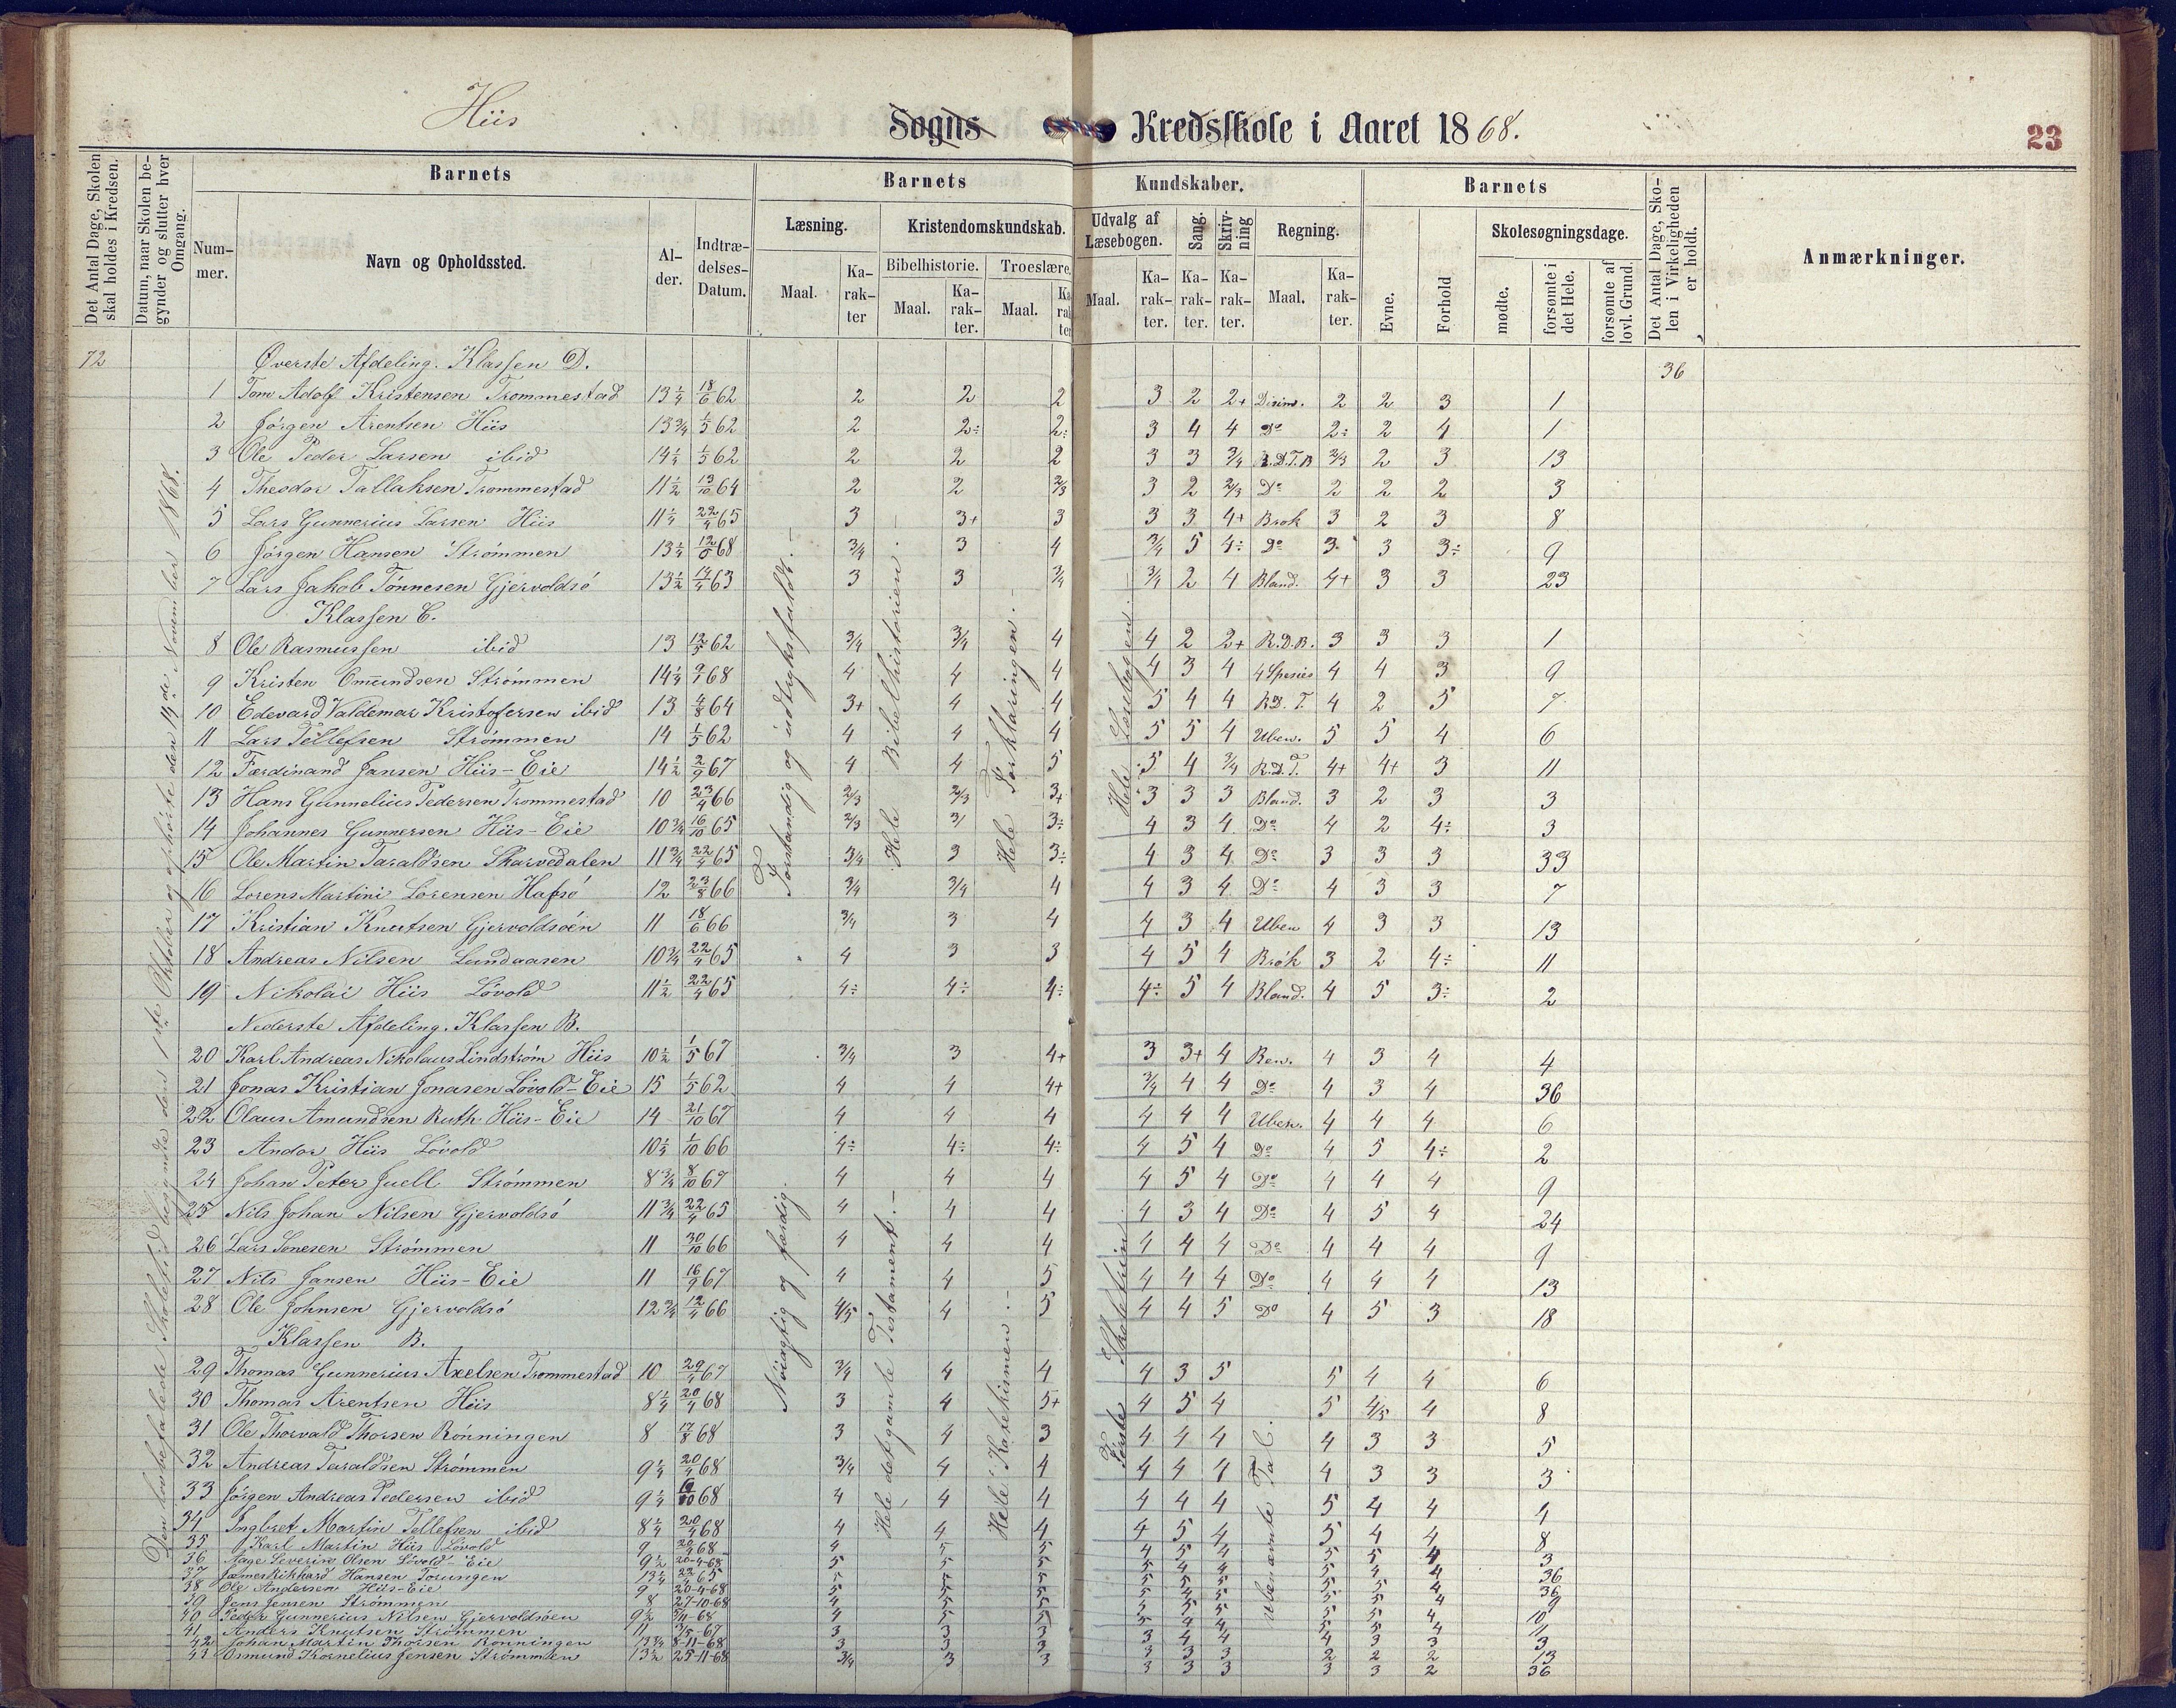 Hiis
Sogns Kredsskole i Aaret 1868.
23
Det Antal Dage, Skolen skal holdes i Kredsen.
Datum, naar Skolen begynder og slutter hver Omgang.
Barnets
Barnets
Kundskaber.
Barnets
Det Antal Dage, Skolen i Virkeligheden er holdt.
Anmærkninger.
Nummer.
Navn og Opholdssted.
Alder.
Indtrædelses-Datum.
Læsning.
Kristendomskundskab.
Udvalg af Læsebogen.
Sang.
Skrivning
Regning.
Evne.
Forhold
Skolesøgningsdage.
Bibelhistorie.
Troeslære.
Maal.
Karakter
Maal.
Karakter.
Maal.
Karakter
Maal.
Karakter.
Karakter.
Karakter.
Maal.
Karakter.
mødte.
forsømte i det Hele.
forsømte af lovl. Grund.
72
Øverste Afdeling. Klassen D.
36
1 Tom Adolf Kristensen Trommestad 13 1/4 18/6 62 2 2 2 3 2 2+ 2 2 3 1
2 Jörgen Arentsen Hiis 13 3/4 1/5 62 2 2÷ 2÷ 3 4 4 Do 2÷ 2 4 1
3 Ole Peder Larsen ibid 14 1/4 1/5 62 2 2 2 3 3 3/4 R.D.T.B 2/3 2 3 13
4 Theodor Tallaksen Trommestad 11 1/2 13/10 64 2 2 2/3 3 2 2/3 Do 2 2 2 3
5 Lars Gunnerius Larsen Hiis 11 1/4 22/4 65 3 3+ 3 3 3 4+ Brok 3 2 3 8
6 Jörgen Hansen Strömmen 13 1/4 68 3/4 3 4 3/4 5 4÷ Do 3 3 3÷ 9
7 Lars Jakob Tönnesen Gjervoldsö 13 1/2 14/4 63 3 3 3/4 3/4 2 4 Bland. 4+ 3 3 23
Klassen C.
8 Ole Rasmussen ibid 13 12/5 62 3/4 3/4 4 4 2 2+ R.D.B. 3 3 3 1
9 Kristen Omundsen Strömmen 14 1/4 68 4 4 4 4 3 4 4 Spesies 4 4 3 9
10 Edevard Valdemar Kristofersen ibid 13 4/8 64 3+ 4 4 5 4 4 R.D. T. 4 2 5 7
11 Lars Tellefsen Strömmen 14 1/5 62 4 4 4 5 5 4 Uben. 5 5 4 6
12 Færdinand Jansen Hiis-Eie 14 1/2 2/9 67 4 4 5 5 4 3/4 R.D.T. 4+ 4+ 3 11
13 Hans Gunnelius Pedersen Trommestad 10 23/4 66 2/3 2/3 3+ 3 3 3 Bland. 3 2 3 3
14 Johannes Gunnersen Hiis-Eie 10 3/4 16/10 65 2/3 3/ 3÷ 4 3 4 Do 4 2 4÷ 3
15 Ole Martin Taraldsen Skarvedalen 11 3/4 22/4 65 3/4 3 3÷ 4 3 4 Do 3 3 3 33
16 Lorens Martini Lorensen Hafsö 12 23/8 66 3/4 3/4 4 4 3 4 Do 4 3 3 7
17 Kristian Knutsen Gjervoldsöen 11 18/6 66 3/4 3 4 4 3 4 Uben 4 3 3 13
18 Andreas Nilsen Lundaasen 10 3/4 22/4 65 4 3 3 4 5 4 Brök 3 2 4÷ 11
19 Nikolai Hiis Lövold 11 1/2 22/4 65 4÷ 4÷ 4÷ 4÷ 5 4 Bland. 4 5 3÷ 2
Nederste Afdeling. Klassen B.
20 Karl Andreas Nikolaus Lindström Hiis 10 1/2 1/5 67 3/4 3 4+ 3 3+ 4 Ben. 4 3 4 4
21 Jonas Kristian Jonasen Lövold-Eie 15 1/5 62 4 4 4+ 3/4 4 4 Do 4 3 4 36
22 Olaus Amundsen Ruth Hiis-Eie 14 21/10 67 4 4 4 4 4 4 Uben. 4 4 4 6
23 Andor Hiis Lövold 10 1/4 1/10 66 4÷ 4÷ 4÷ 4 5 4 Do 4 5 4÷ 2
24 Johan Peter Juell Strömmen 8 3/4 8/10 67 4 4 4 4 5 4 Do 4 4 4 9
25 Nils Johan Nilsen Gjervoldsö 11 3/4 22/4 65 4 4 4 4 3 4 Do 4 5 4 24
26 Lars Sonesen Strömmen 11 30/10 66 4 4 4 4 4 4 Do 4 4 4 9
27 Nils Jansen Hiis-Eie 11 16/9 67 4 4 5 4 4 4 Do 4 4 4 13
28 Ole Johnsen Gjervoldsö 12 3/4 12/4 66 4/5 4 5 4 4 5 Do 4 5 3 18
Klassen B.
29 Thomas Gunnerius Axelsen Trommestad 10 29/4 67 3/4 4 4 4 3 5 5 4 4 6
30 Thomas Arentsen Hiis 8 1/4 20/4 68 3 4 5+ 4 5 4 5 4/5 4 8
31 Ole Thorvald Thorsen Rönningen 8 17/8 68 3 4 3 4 4 4 4 3 3 5
32 Andreas Taraldsen Strömmen 9 1/4 20/4 68 3/4 4 4 4 4 4 4 3 3 3
33 Jörgen Andreas Pedersen ibid 9 1/4 68 4 4 4 4 4 4 5 4 4 4
34 Ingbret Martin Tellefsen ibid 8 1/4 20/4 68 4 4 4 4 5 4 5 4 4 8
35 Karl Martin Hiis Lövold 9 20/4 68 4 5 5 4 5 4 5 5 4 3
36 Aage Severin Olsen Lövold Eie 9 1/2 20-4-68 5 5 5 36
37 James Rikhard Hansen Torungen 13 1/4 22/4 65 36
38 Ole Andersen Hiis-Eie 9 20-4-68 5 5 5
39 Jens Jensen Strömmen 8 27-10-68 9
40 Peder Gunnerius Nilsen Gjervoldsöen 9 1/2 3/4-68 4 5 5 10
41 Anders Knutsen Strömmen 11 3/5-67 3 3 3 11
42 Johan Martin Thorsen Ronningen 13 3/4 8-11-68 3 3 3 3 3 3 2 2 2 13
43 Osmund Kornelius Jensen Strömmen 13 1/2 25-11-68 3/4 3 3 3 3 3 3 3 2 36
Den lovbefalede Skoletid begyndte den 1ste Oktober og ophörte den 14de November 1868.
Forstandig og udtryksfuldt.-
Hele Bibelhistorien.-
Hele Forklaringen.-
Hele Læsebogen.
Nöiagtig og færdig.
Hele det gamle Testament.-
Hele Katekismen.-
Förste Skoletrin
ubenævnte Tal.